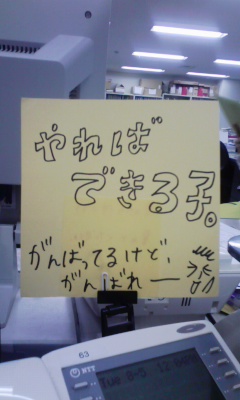 やれば
できる子。
がんばってるけど、
がんばれー
63
NTT